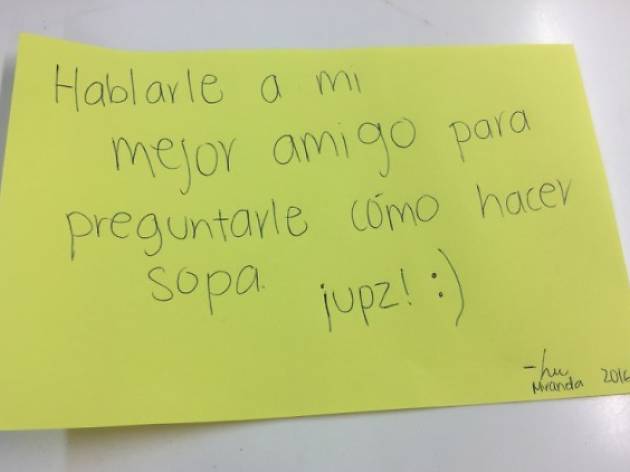 Hablarle a mi
mejor amigo para
preguntarle cómo hacer
sopa. ¡upz! :)
Miranda 2016